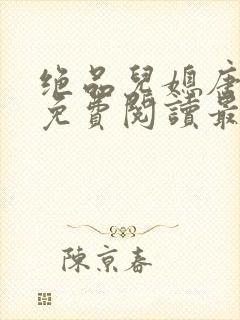 绝品兒媳唐
免費閱讀最
陳京春